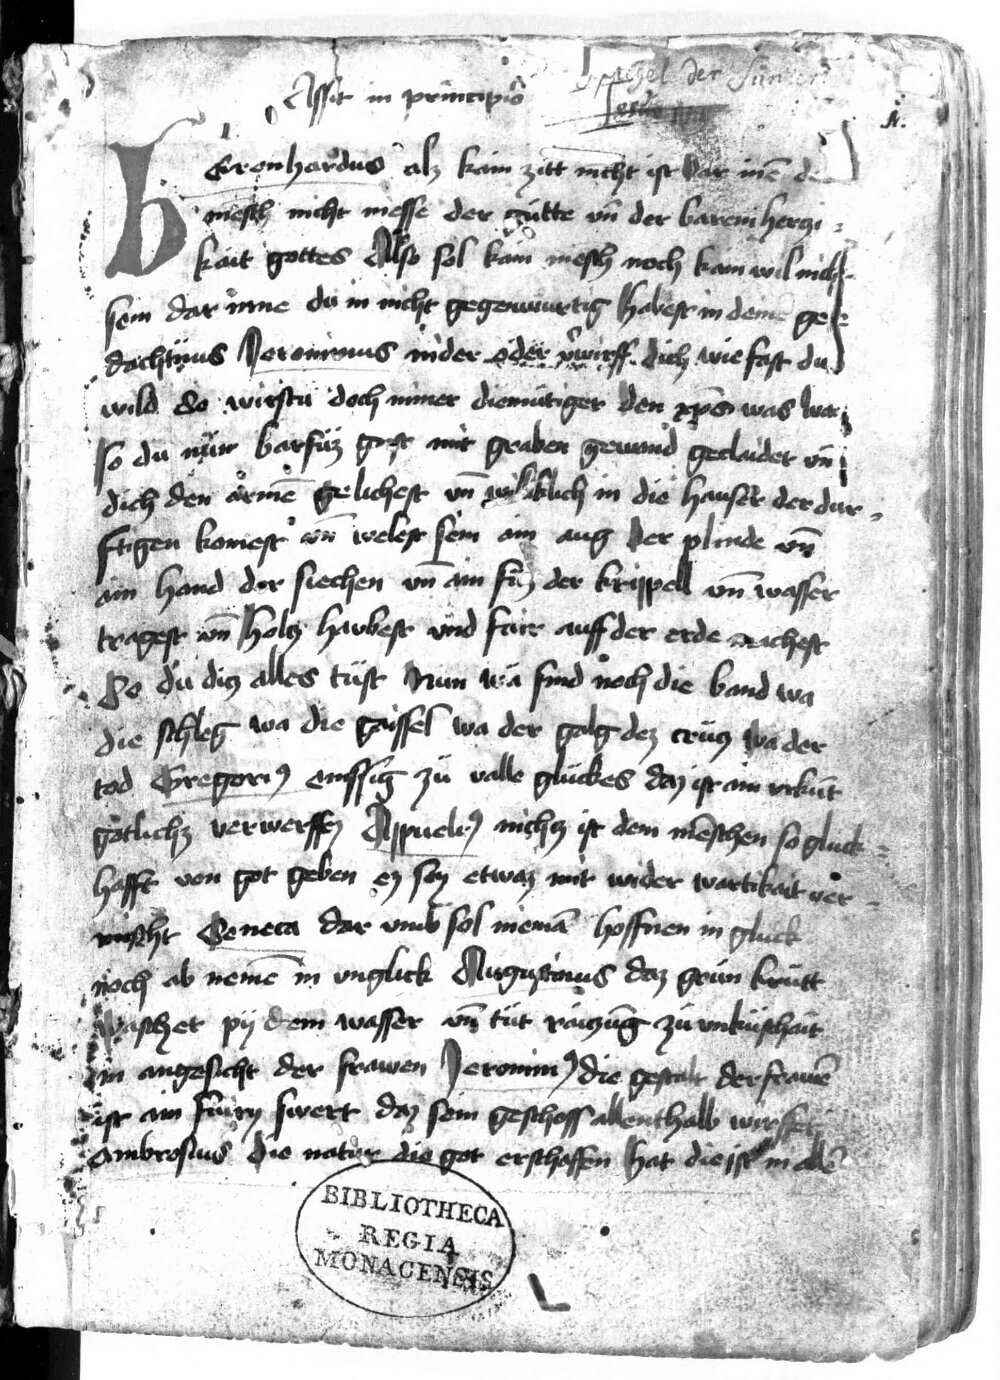 Spiegel der Sunder
Assit in principio
1.
Bernhardus alz kain zitt nicht ist dar inē de
mēsch nicht niesse der gütte vn̄ der baremherczi
kait gottes Also sol kain mēsch noch kain wil nich
sein dar inne du in nicht gegenwürtig habest in deinē ge
dachtnüus Jeronimus nider oder v̓wirff dich wie fast du
wild So wirstu doch nimer diemütiger den xp̄s was
so du nun barfüz gest mit groben gewand geclaidet vn̄
dich den armē gelichest vn̄ in die hauser der dur
ftigen komest vn̄ welest sein ain aug der plinde vn̄
ain hand der siechen vn̄ ain füz der krippell vn̄ wasser
tragest vn̄ holtz haubest vnd fair auff der erde machest
So du diz alles tüst Nun wa sind noch die band wa
die schleg wa die gaissel wa der galg dez crütz wa der
tod Gregoriꝰ emssig zü valle glückes daz ist ain vrkūt
götlichz verwerffen Appuleiꝰ nichtz ist dem mēschen so gluck
hafft von got geben ez sey etwaz mit wider wartikait ver
mischt Seneca dar vmb sol niemā hoffnen in gluck
noch ab nemē in vnglick Augustinus daz grün krütt
waschet pij dem wasser vn̄ tüt raiczūg zü vnküschait
in angesicht der frawen Jeronimꝰ die gestalt der frawē
ist ain füirin swert daz sein geschoss allenthalb
Ambrosius die natur die got erschaffen hat die ist in allē
BIBLIOTHECA
REGIA
MONACENSIS